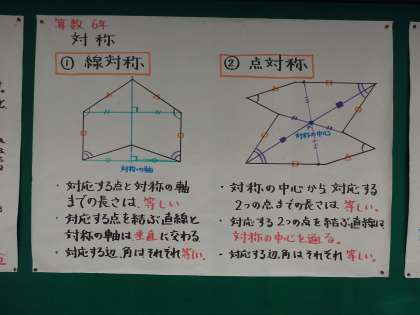 算数 6年
対称
① 線対称
対称の軸
・対応する点と対称の軸
までの長さは、等しい
・対応する点を結ぶ直線と
対称の軸は垂直に交わる
・対応する辺、角はそれぞれ等しい。
② 点対称
対称の中心
・対称の中心から対応する
2つの点までの長さは等しい。
・対応する2つの点を結ぶ直線は
対称の中心を通る。
・対応する辺、角はそれぞれ等しい。